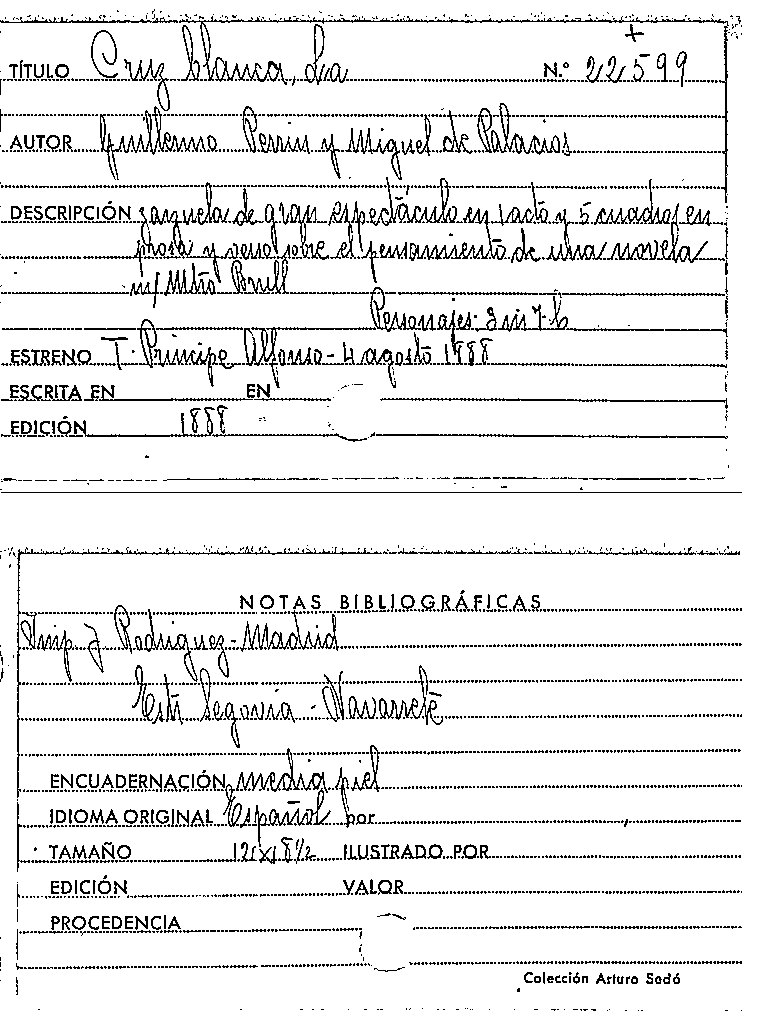 +
TÍTULO Cruz blanca, La N.º 22599
AUTOR Guillermo Perrin y Miguel de Palacios
DESCRIPCIÓN zarzuela de gran espectáculo en 1 acto y 5 cuadros en
prosa y verso sobre el pensamiento de una novela
m/ Mtro Brull
Personajes: 3 m 7 h
ESTRENO T. Principe Alfonso - 4 agosto 1888
ESCRITA EN EN
EDICIÓN 1888
NOTAS BIBLIOGRÁFICAS
Imp J Rodriguez - Madrid
Estr Segovia - Navarrete
ENCUADERNACIÓN media piel
IDIOMA ORIGINAL Español por
TAMAÑO ILUSTRADO POR
EDICIÓN VALOR
PROCEDENCIA
Colección Arturo Sedó